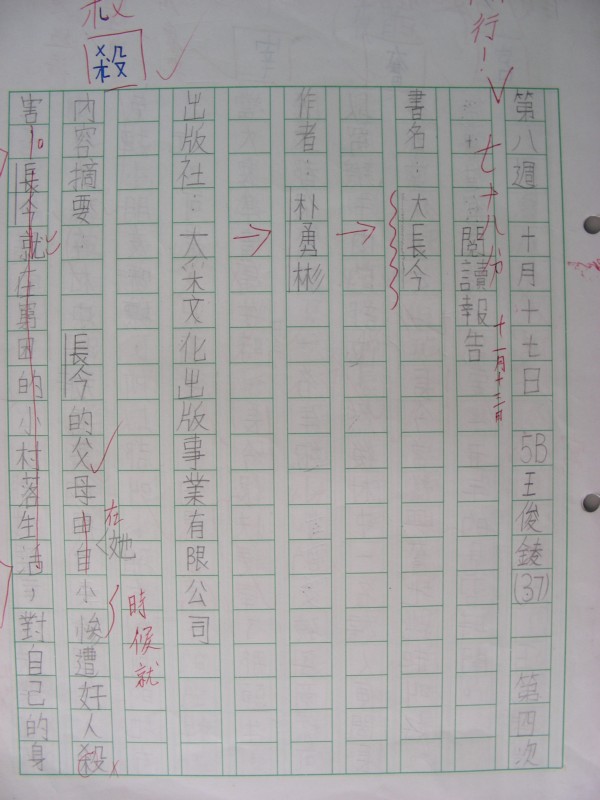 第八週 十月十七日 5B王俊錂(37) 第四次
行！
七十八分
十一月十三日
閱讀報告
書名：大長今
作者：朴勇彬
出版社：大采文化出版事業有限公司
殺
內容摘要： 長今的父母由自小慘遭奸人殺
在她
時候就
害。長今就在貧困的小村落生活，對自己的身